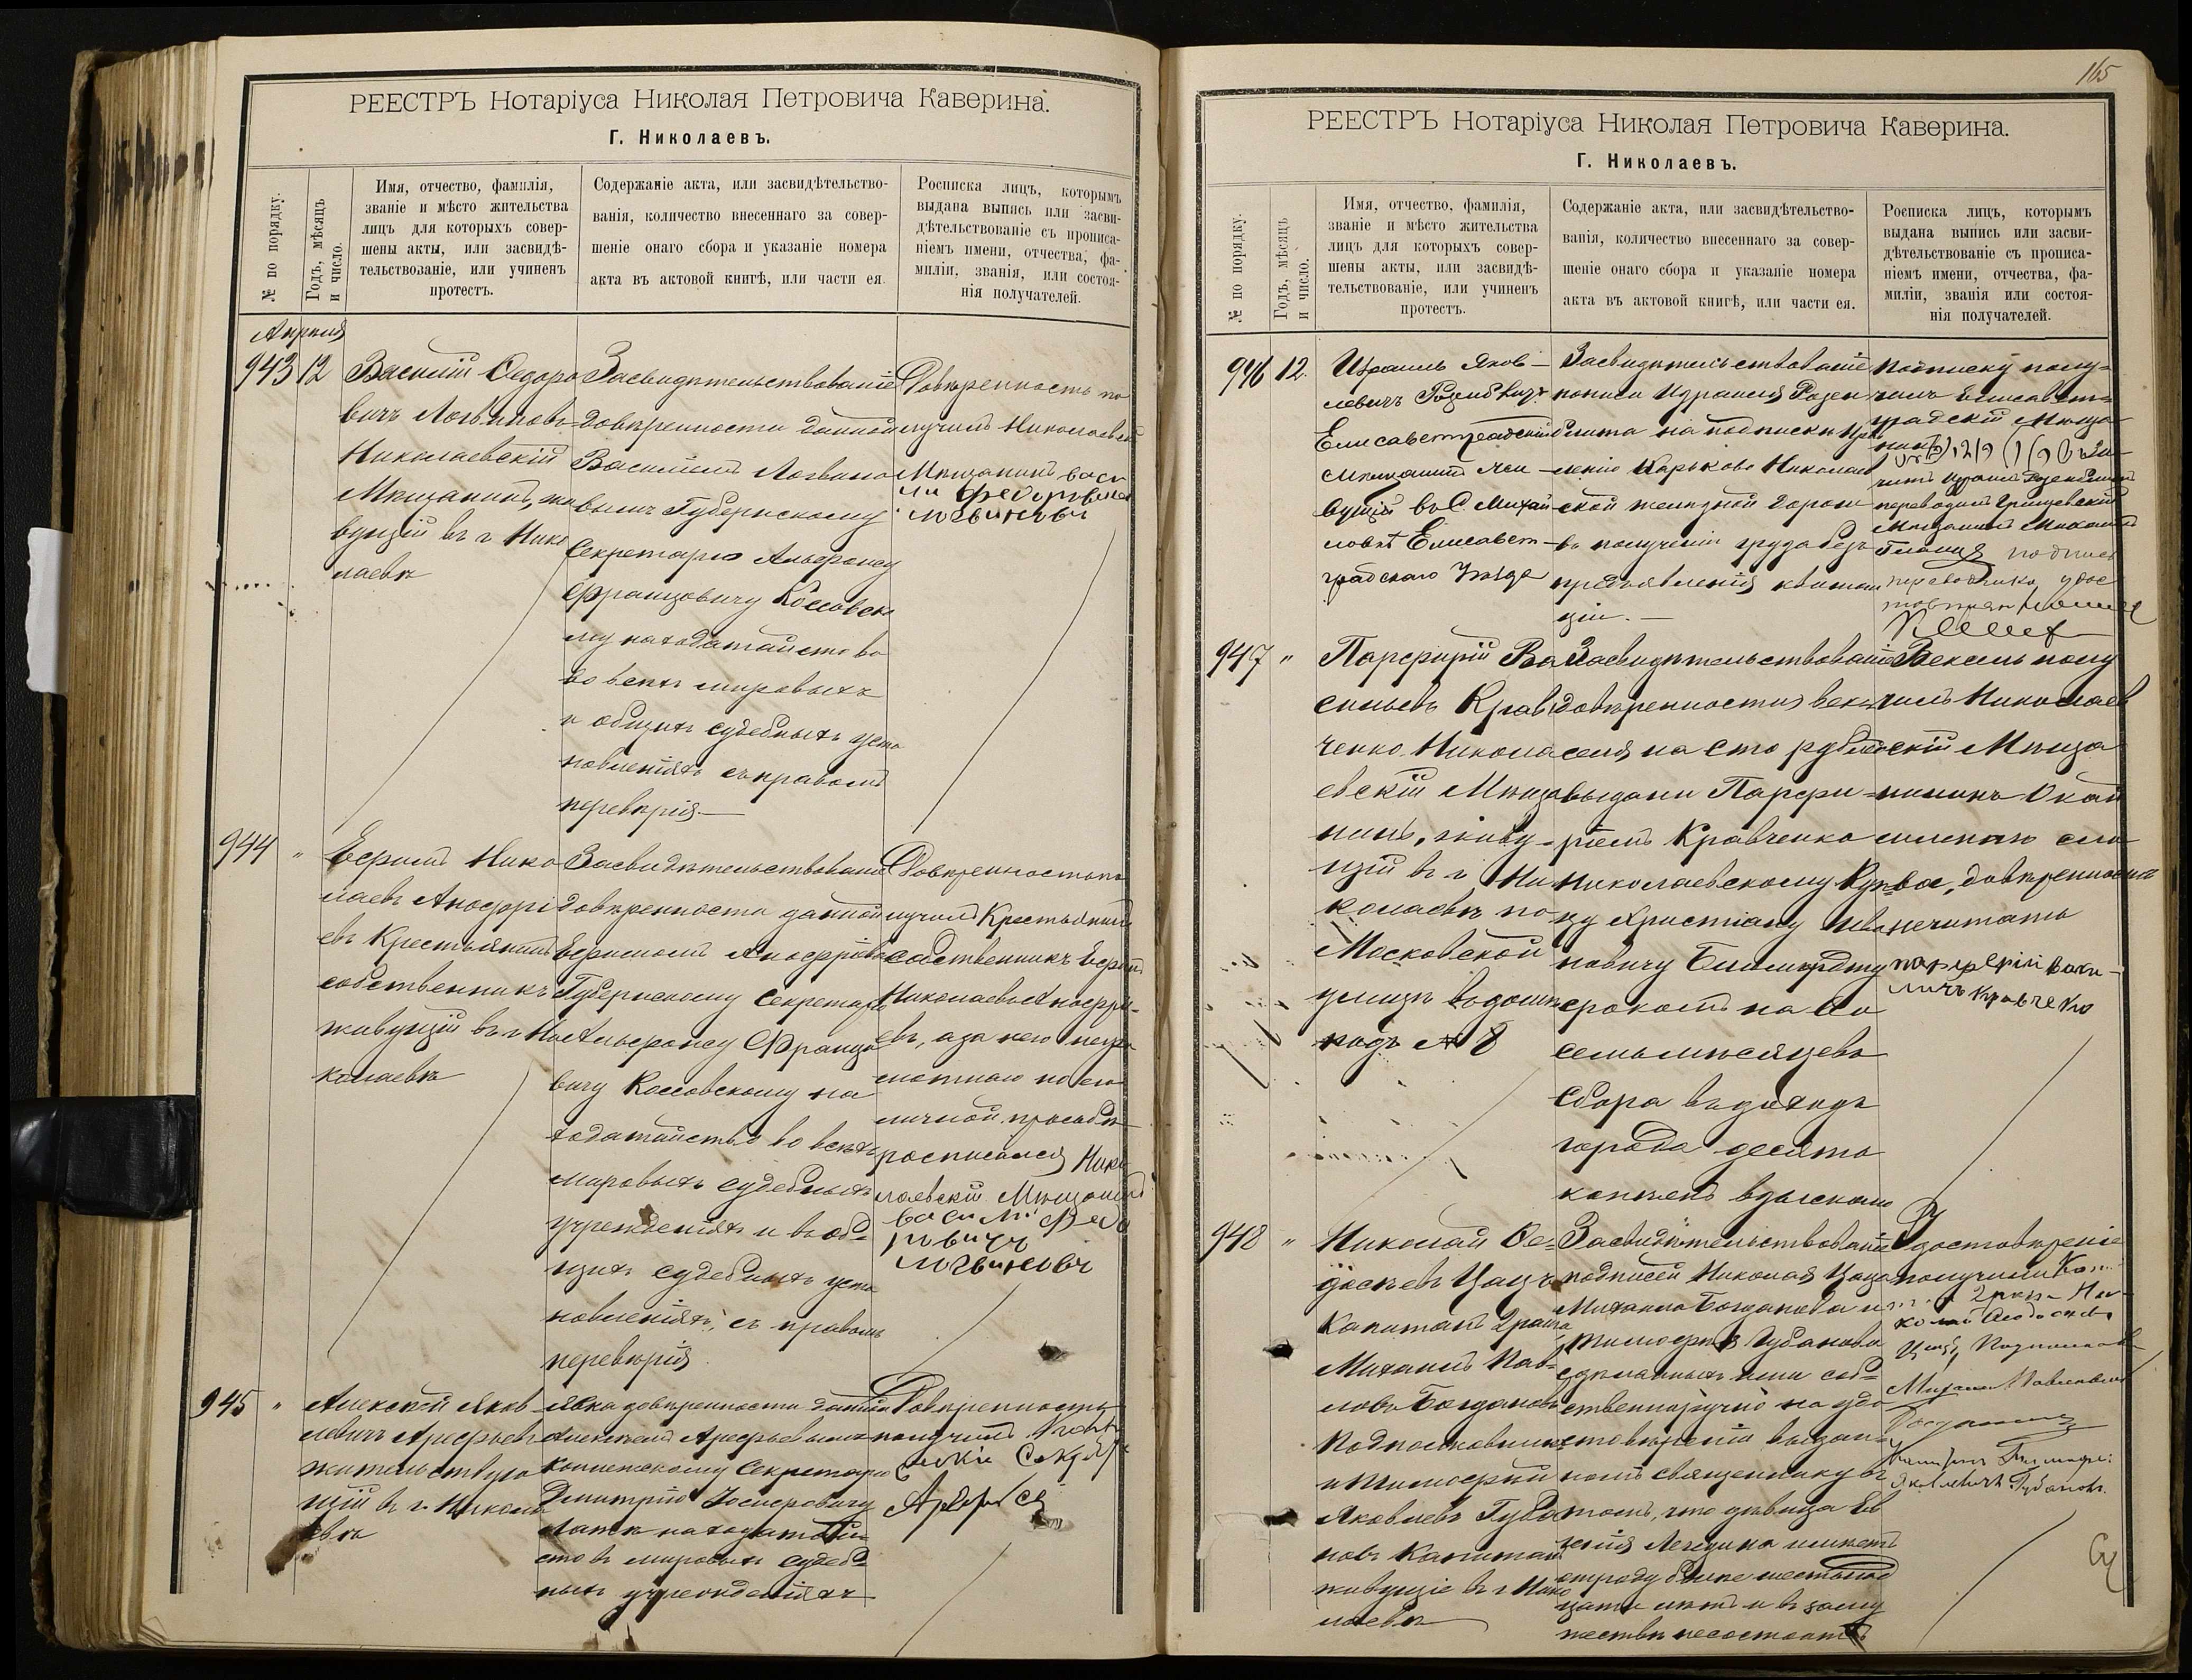 РЕЕСТРЪ Нотаріуса Николая Петровича Каверина.
Г. Николаевъ.
№ по порядку.
Годъ, мѣсяцъ
и число.
Имя, отчество, фамилія,
званіе и мѣсто жительства
лицъ для которыхъ совер-
шены акты, или засвидѣ-
тельствованіе, или учиненъ
протестъ.
Содержаніе акта, или засвидѣтельство-
ванія, количество внесеннаго за совер-
шеніе онаго сбора и указаніе номера
акта въ актовой книгѣ, или части ея.
Росписка лицъ, которымъ
выдана выпись или засви-
дѣтельствованіе съ прописа-
ніемъ имени, отчества, фа-
миліи, званія, или состоя-
нія получателей.
Апрѣля
943 12
Василій Федоро
вичъ Логвиновъ
Николаевскій
Мѣщанинъ, жи
вущій въ г Нико
лаевѣ
Засвидѣтельствованіе
довѣренности данной
Василіемъ Логвино
вымъ Губернскому
Секретарю Альфонсу
Францовичу Коссовско
му на ходатайство
во всѣхъ мировыхъ
и общихъ судебныхъ уста
новленіяхъ съ правомъ
передовѣрія
Довѣренность по
лучилъ Николаевскій
Мѣщанинъ Васи
лій Федоровичъ
Логвиновъ
944 "
Нико
лаевъ
евъ Крестьянинъ
собственникъ
живущій въ г Ни
колаевѣ
Засвидѣтельствованіе
довѣренности данной
Губернскому Секретарю
Альфонсу Францо
вичу Коссовскому на
ходатайство во всѣхъ
мировыхъ судебныхъ
учрежденіяхъ и въ об-
щихъ судебныхъ уста
новленіяхъ, съ правомъ
передовѣрія
Довѣренность по
лучилъ Крестьянинъ
собственникъ
Николаевъ
евъ, а за него негра
мотнаго по его
личной просьбѣ
росписался Нико
лаевскій Мѣщанинъ
Василій Федо
ровичъ
Логвиновъ
945 "
Алексѣй Яков-
левичъ Арефьевъ
жительствую
щій въ г. Никола
евѣ
Явка довѣренности данной
Алексѣемъ Арефьевымъ
Коллежскому Секретарю
Дмитрію Іосифовичу
на ходатай
ство въ мировыхъ судеб-
ныхъ учрежденіяхъ
Довѣренность
получилъ
Арефьевъ
165
РЕЕСТРЪ Нотаріуса Николая Петровича Каверина.
Г. Николаевъ.
№ по порядку.
Годъ, мѣсяцъ
и число.
Имя, отчество, фамилія,
званіе и мѣсто жительства
лицъ для которыхъ совер-
шены акты, или засвидѣ-
тельствованіе, или учиненъ
протестъ.
Содержаніе акта, или засвидѣтельство-
ванія, количество внесеннаго за совер-
шеніе онаго сбора и указаніе номера
акта въ актовой книгѣ, или части ея.
Росписка лицъ, которымъ
выдана выпись или засви-
дѣтельствованіе съ прописа-
ніемъ имени, отчества, фа-
миліи, званія или состоя-
нія получателей.
946 12.
Израиль Яков-
левичъ
Елисаветградскій
Мѣщанинъ жи
вущій въ С Михай
ловкѣ Елисавет-
градскаго Уѣзда
Засвидѣтельствованіе
подписи Израиля Розен
блита на подпискѣ Упра
вленію Харьково Николаев
ской желѣзной дороги
въ полученіи груза безъ
предъявленія квитан
ціи.
Подписку полу-
чилъ Елисавет-
градскій Мѣща
нинъ
переводилъ
Мѣщанинъ
подпись
переводчика
947 "
Парфирій Ва
сильевъ Крав
ченко Никола
евскій Мѣща
нинъ, живу-
щій въ г Ни
колаевѣ по
Московской
улицѣ въ домѣ
подъ № 8
Засвидѣтельствованіе
довѣренности, век
селя на сто рублей
выдани Парфи-
ріемъ Кравченко
Николаевскому Куп
цу Христіану Ива
новичу
срокомъ на во
семь мѣсяцевъ
Сбора въ доходъ
города десять
копѣекъ взыскано
Вексель полу
чилъ Николаев
скій Мѣща
нинъ
довѣренности
не читать
Парфірій Васи-
личъ Кравченко
948 "
Николай Ѳе-
досѣевъ Цацъ
Капитанъ 2 ранга
Михаилъ Пав-
ловъ Богдановъ
Подполковникъ
и Тимофей
Яковлевъ Губа
новъ Капитанъ
живущіе въ г Нико
лаевѣ
Засвидѣтельствованіе
подписей Николая Цаца
Михаила Богданова и
Тимофея Губанова
сдѣланныхъ ими соб-
ственноручно на удо
стовѣреніи выдан-
номъ священнику въ
томъ, что дѣвица Ев
генія имѣетъ
отъ роду болѣе шестьнад
цати лѣтъ и въ заму
жествѣ не состоитъ
Удостовѣреніе
получили Кап.
2 ранга Ни-
колай Ѳеодосіевъ
Цацъ, Подполковн
Михаилъ Павловичъ
Богдановъ
Капитанъ Тимофей
Яковлевичъ Губановъ.